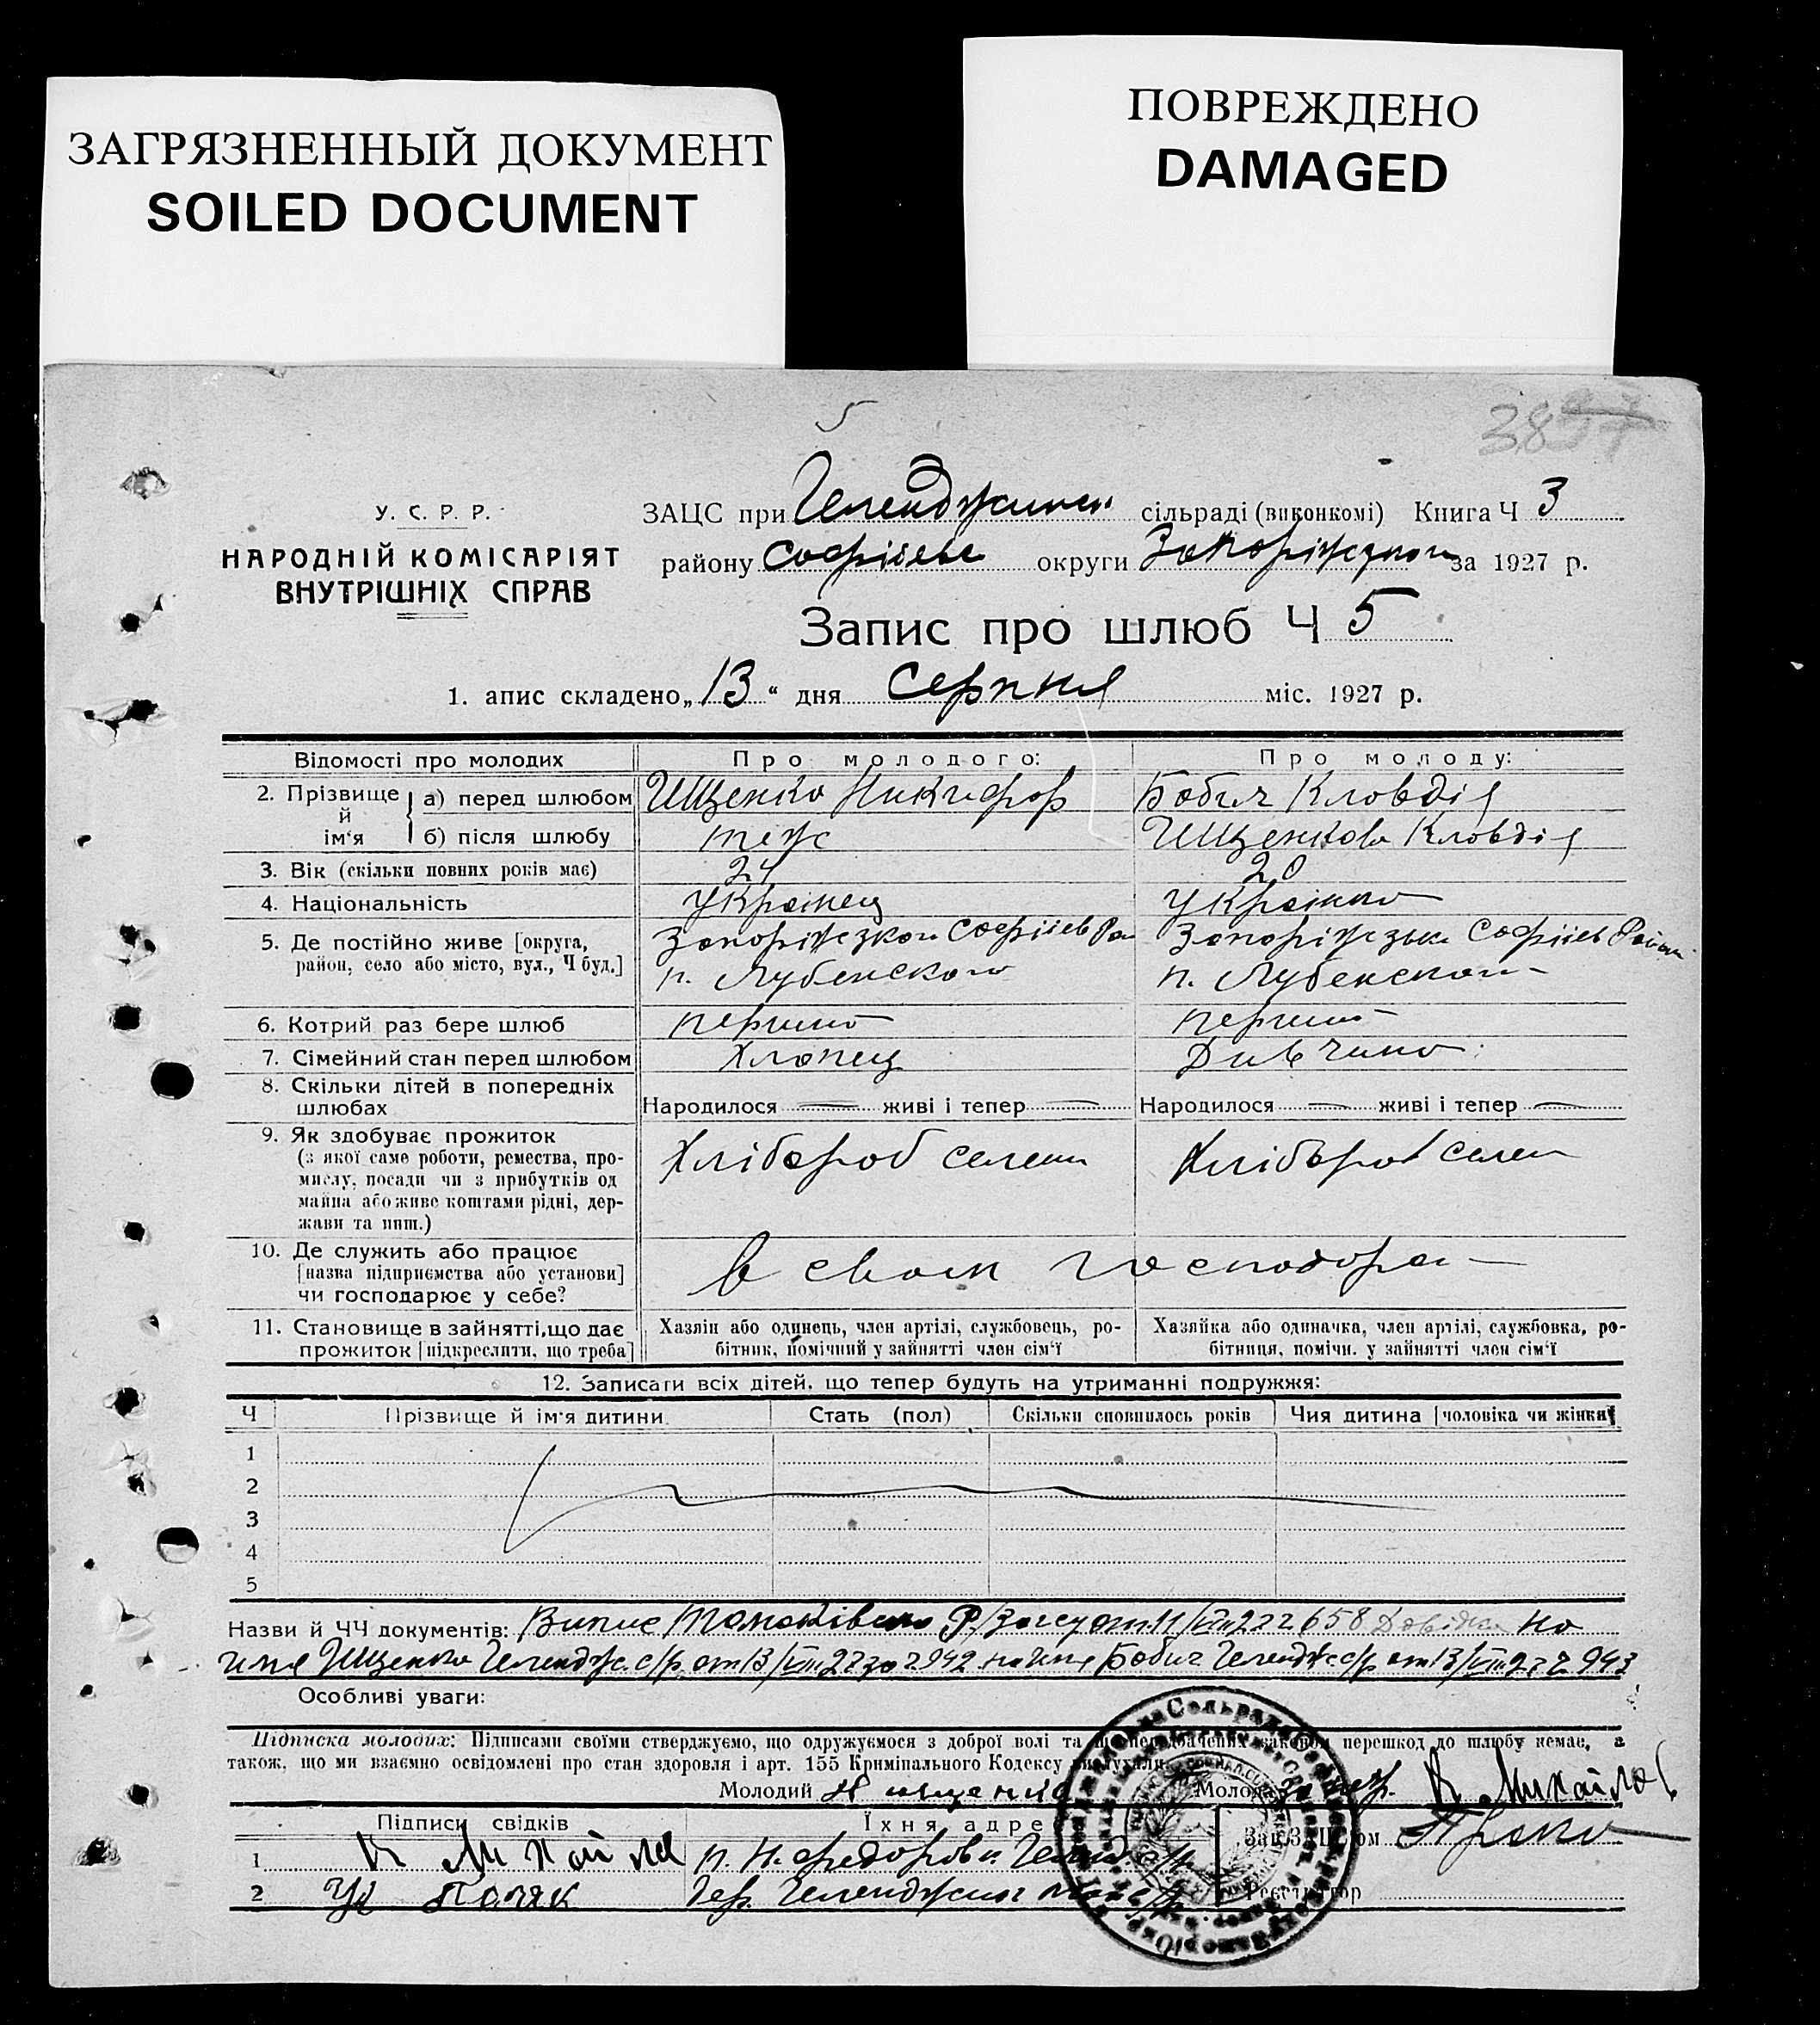 ЗАГРЯЗНЕННЫЙ ДОКУМЕНТ
SOILED DOCUMENT
ПОВРЕЖДЕНО
DAMAGED
5
У. С. Р. Р.
НАРОДНІЙ КОМІСАРІЯТ
ВНУТРІШНІХ СПРАВ
ЗАЦС при сільраді (виконкомі) Книга Ч 3
району Софіїевс округи Запоріжської за 1927 р.
Запис про шлюб Ч 5
1. апис складено „13“ дня серпня міс. 1927 р.
Відомості про молодих Про молодого: Про молоду:
2. Прізвище й ім‘я
а) перед шлюбом Ищенко Никифор Бабич Кловдія
б) після шлюбу теж Ищенкова Кловдія
3. Вік (скільки повних років має) 24 20
4. Національність Українец Українка
5. Де постійно живе [округа, район, село або місто, вул., Ч буд.]
Запоріжской Софіїев Рай Запоріжськ Софіїев Район
п. Лубенского п. Лубенского
6. Котрий раз бере шлюб перший перший
7. Сімейний стан перед шлюбом Хлопец Дивчина
8. Скільки дітей в попередніх шлюбах
Народилося — живі і тепер — Народилося — живі і тепер —
9. Як здобуває прожиток
(з якої саме роботи, ремества, про-
мислу, посади чи з прибутків од
майна або живе коштами рідні, дер-
жави та инш.)
Хлібороб селян Хлібороб селян
10. Де служить або працює
[назва підприємства або установи]
чи господарює у себе?
в своем господар
11. Становище в зайнятті, що дає
прожиток [підкреслити, що треба]
Хазяїн або одинець, член артілі, службовець, ро-
бітник, помічний у зайнятті член сім‘ї
Хазяйка або одиначка, член артілі, службовка, ро-
бітниця, помічн. у зайнятті член сім‘ї
12. Записати всіх дітей, що тепер будуть на утриманні подружжя:
Ч Прізвище й ім‘я дитини Стать (пол) Скільки сповнилось років Чия дитина [чоловіка чи жінки]
1
2
3
4
5
Назви й ЧЧ документів: Випис Р. Довідка на
имя Ищенко с/р от 13/VIII 27 942 на имя Бабич с/р от 13/VIII 27 943
Особливі уваги:
Підписка молодих: Підписами своїми стверджуємо, що одружуємося з доброї волі та що передбачених законом перешкод до шлюбу немає, а
також, що ми взаємно освідомлені про стан здоровля і арт. 155 Кримінального Кодексу вислухали.
Молодий Н ищенко Молода В Михайлов
Підписи свідків Їхня адреса Зав. ЗАЦСом
1 В Михайлов п. Н. Федоровк
2 Поляк Реєстратор